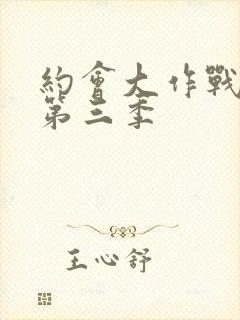 約會大作戰
第三季
王心舒